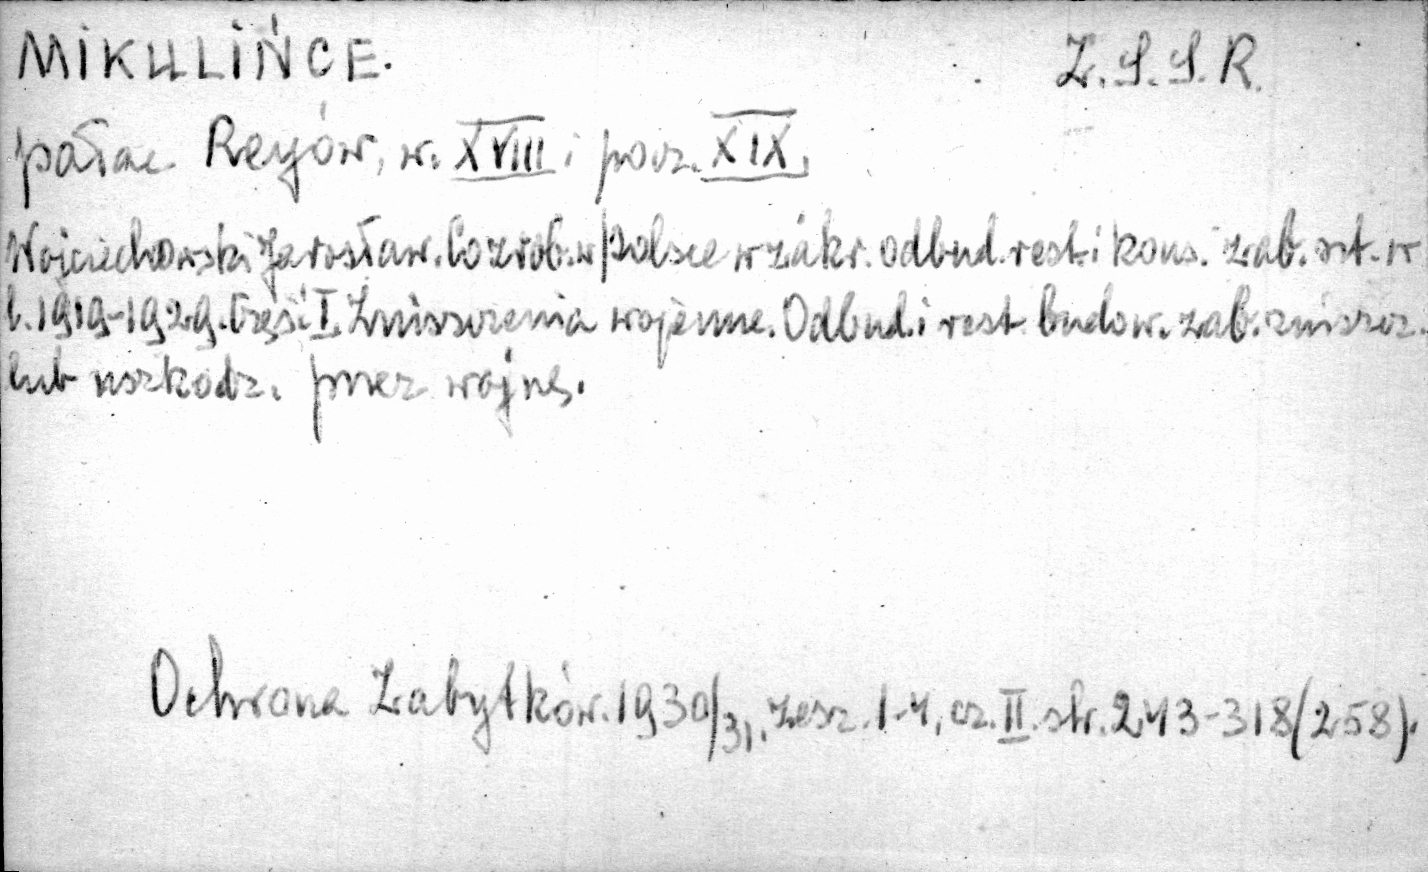 MIKULIŃCE. Z.S.S.R.
pałac Reyów, w. XVIII i pocz. XIX.
Wojciechowski Jarosław. Co zrob. w Polsce w zakr. odbud. rest. i kons. zab. szt. w
l. 1919-1929. Część I. Zniszczenia wojenne. Odbud. i rest. budow. zab. zniszcz.
lub uszkodz. przez wojnę.
Ochrona Zabytków. 1930/31, zesz. 1-4, cz. II. str. 243-318 (258).